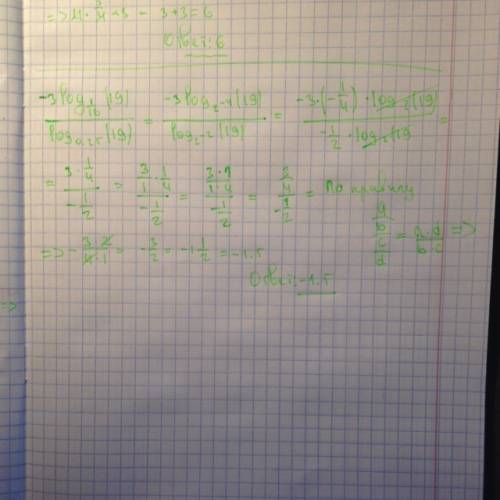 => 4 · 3/4 + 3 - 3 + 3 = 6
Ответ: 6
-3log_{1/16}(19) / log_{0,25}(19) = -3log_{2^{-4}}(19) / log_{2^{-2}}(19) = -3 · (-1/4) · log_2(19) / -1/2 · log_2(19) =
= 3 · 1/4 / -1/2 = 3/1 · 1/4 / -1/2 = 3·1/1·4 / -1/2 = 3/4 / -1/2 = по правилу
a/b / c/d = a·d / b·c =>
=> - 3·2 / 4·1 = -3/2 = -1 1/2 = -1.5
Ответ: -1.5
=>